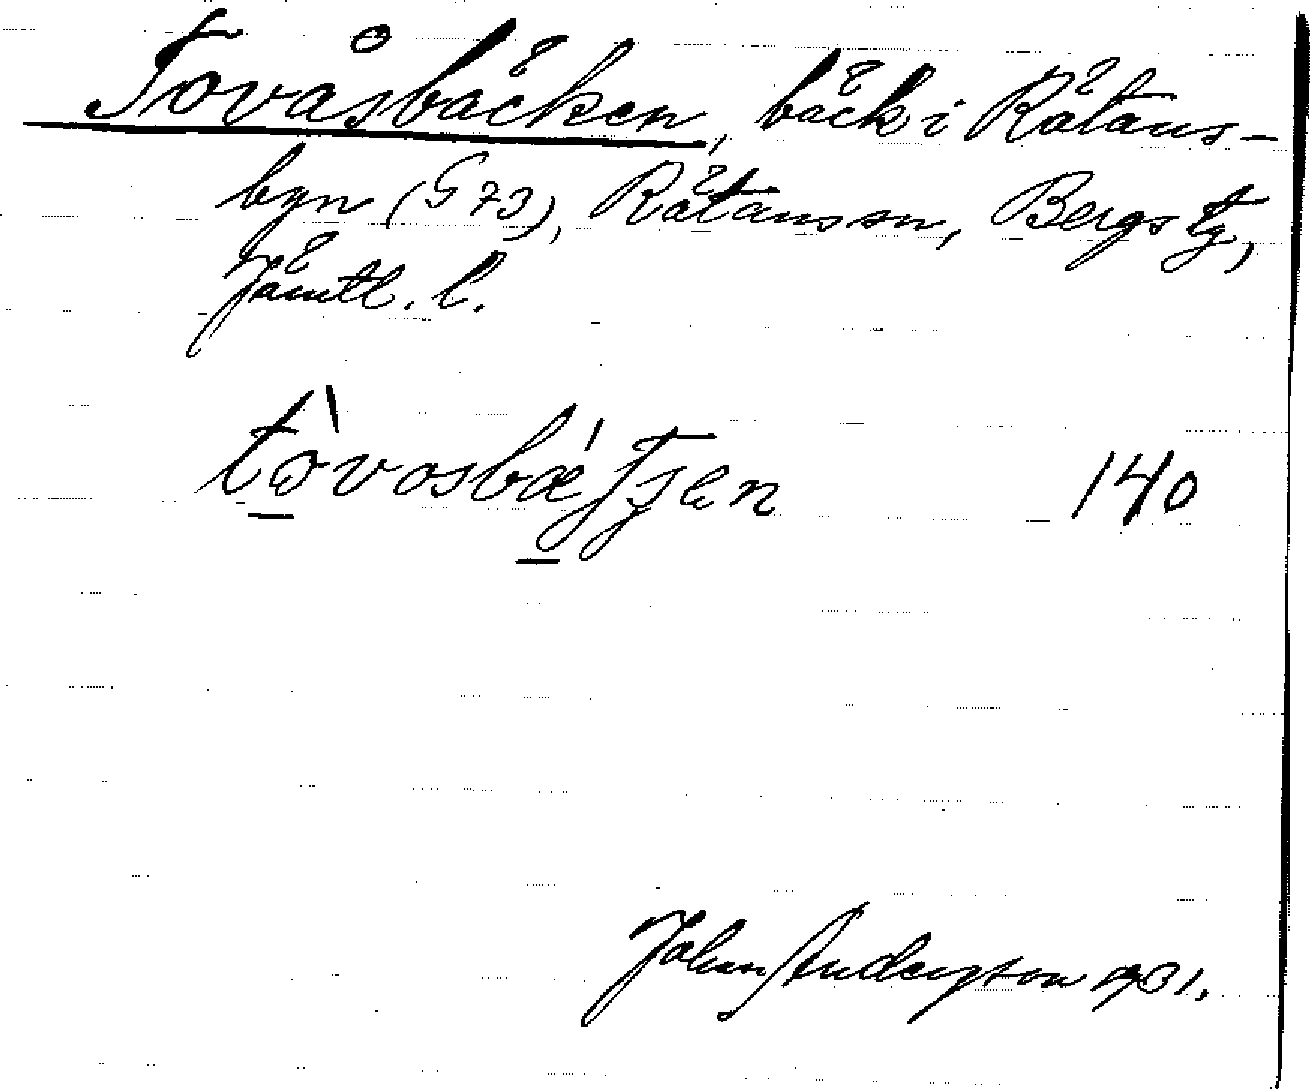 Tovåsbäcken, bäck i Rätans-
byn (G 73), Rätans sn, Bergs tg,
Jämtl. l.
140
John Anderzson 1931.